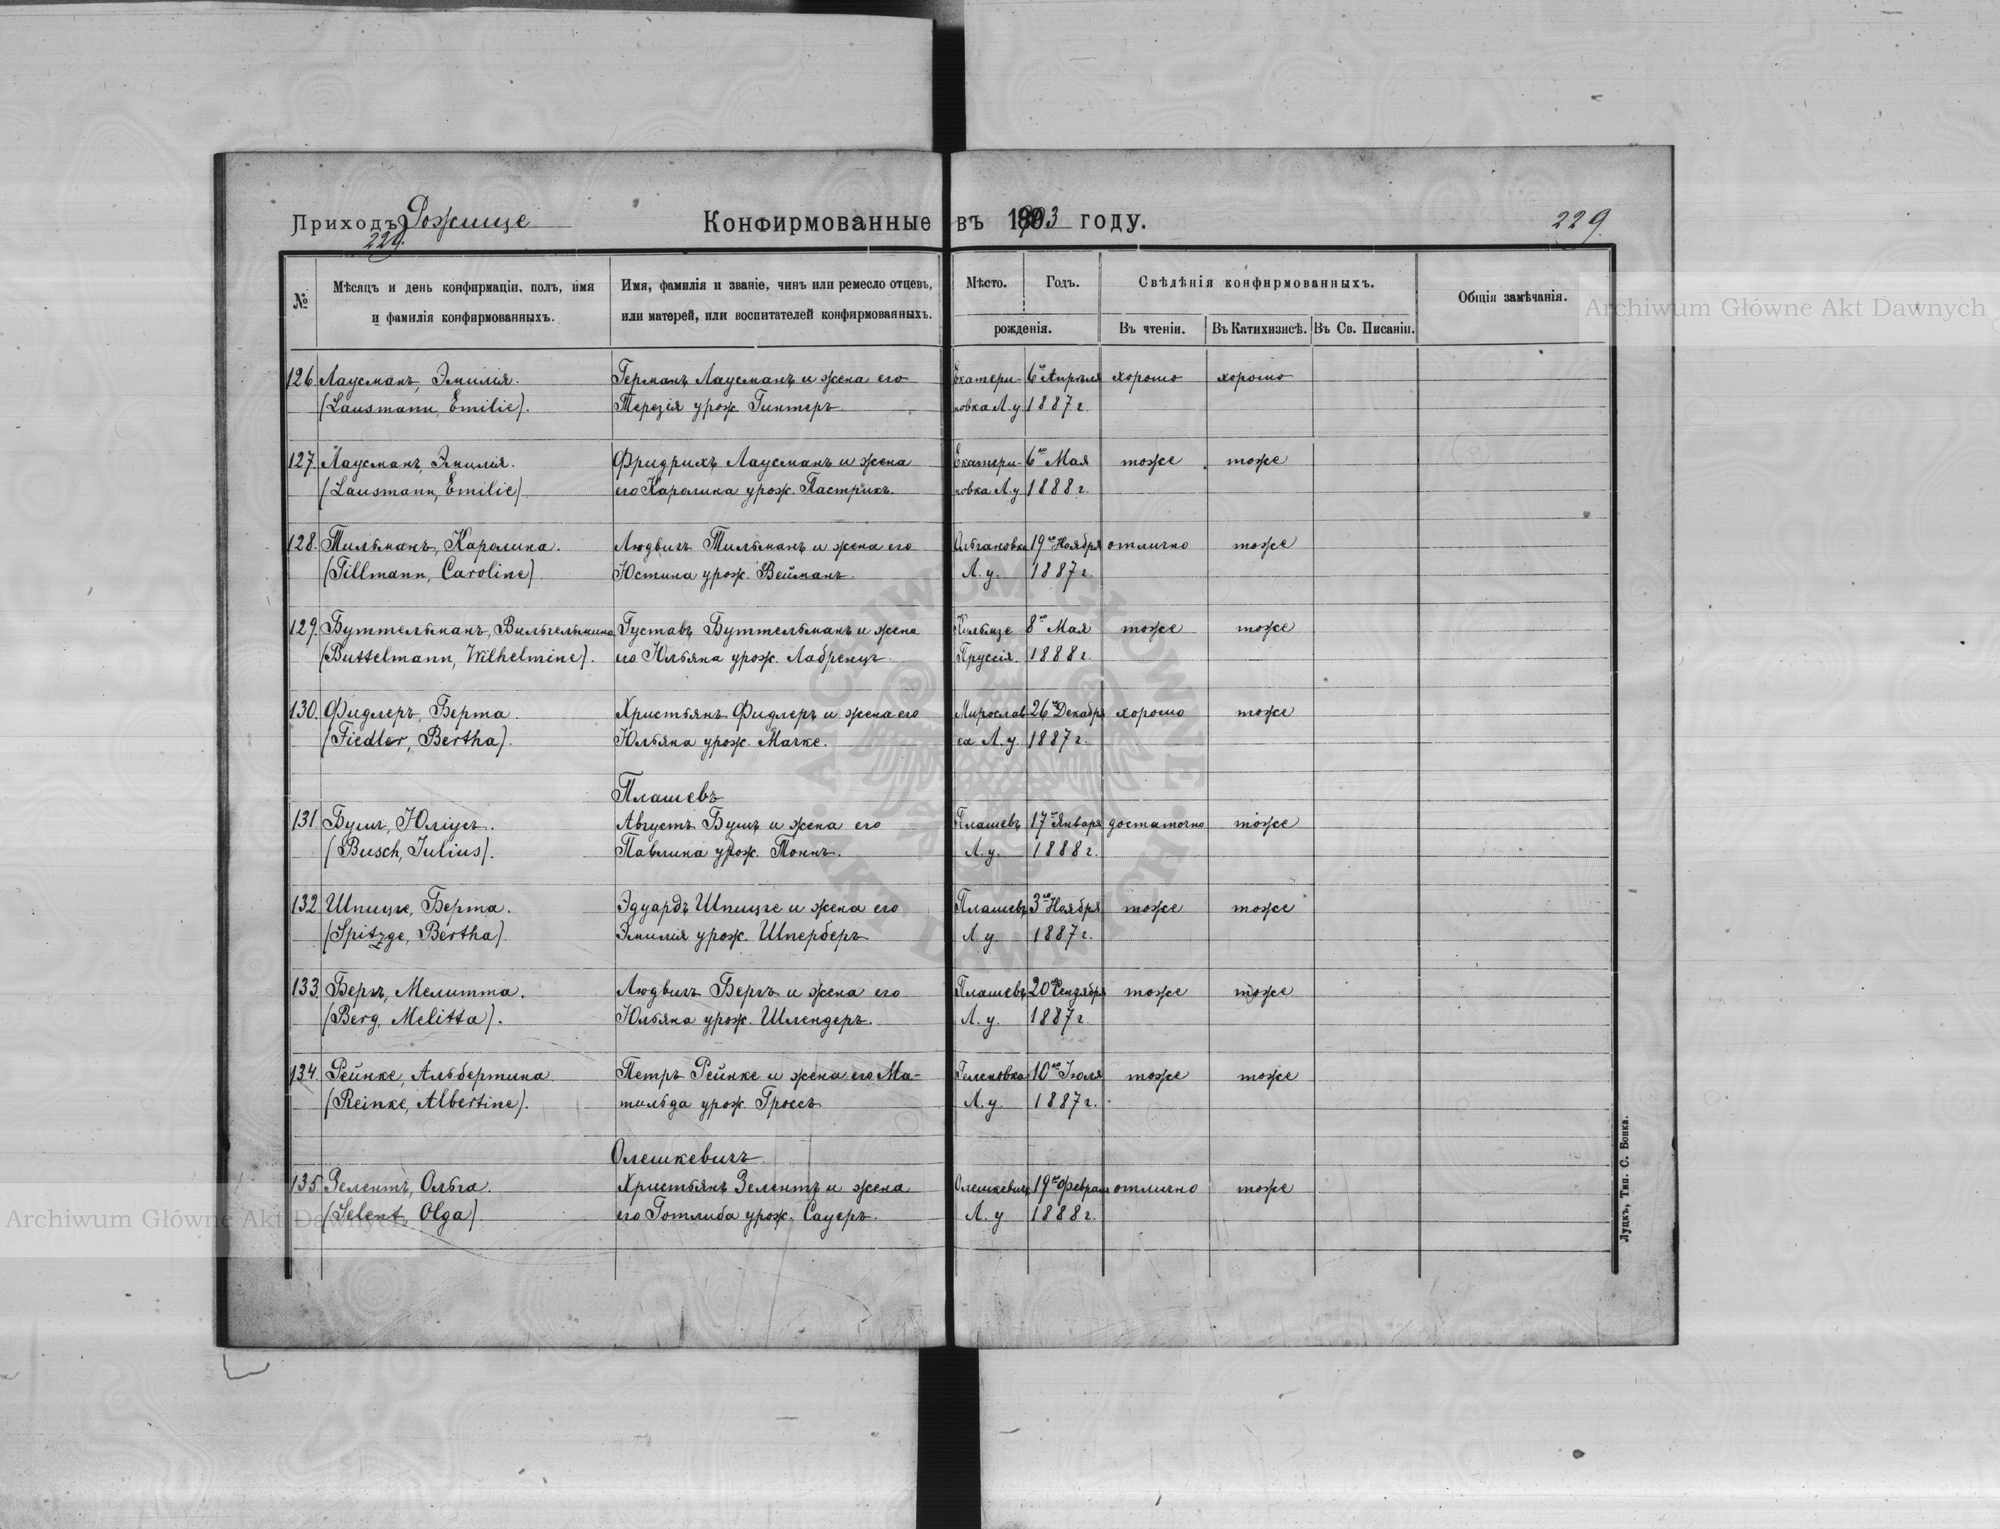 Приходъ Рожище Конфирмованные въ 1903 году. 229.
229.
№ Мѣсяцъ и день конфирмаціи, полъ, имя и фамилія конфирмованныхъ. Имя, фамилія и званіе, чинъ или ремесло отцевъ, или матерей, или воспитателей конфирмованныхъ. Мѣсто. Годъ. рожденія. Свѣдѣнія конфирмованныхъ. Въ чтеніи. Въ Катихизисѣ. Въ Св. Писаніи. Общія замѣчанія.
126. Лаусманъ, Эмилія. Германъ Лаусманъ и жена его Екатери- 6го Апрѣля хорошо хорошо
(Lausmann, Emilie). Терезія урож. Гинтеръ. новка Л.у. 1887 г.
127. Лаусманъ, Эмилія. Фридрихъ Лаусманъ и жена Екатери- 6го Мая тоже тоже
(Lausmann, Emilie). его Каролина урож. Пастрикъ. новка Л.у. 1888 г.
128. Тильманъ, Каролина. Людвигъ Тильманъ и жена его Ольгановка 19го Ноября отлично тоже
(Tillmann, Caroline). Юстина урож. Вейманъ. Л. у. 1887 г.
129. Буттельманъ, Вильгельмина Густавъ Буттельманъ и жена Кульмзе 8го Мая тоже тоже
(Buttelmann, Wilhelmine). его Юльяна урож. Лабренцъ. Пруссія. 1888 г.
130. Фидлеръ, Берта. Христьянъ Фидлеръ и жена его Мирослав- 26го Декабря хорошо тоже
(Fiedler, Bertha). Юльяна урож. Мачке. ка Л.у. 1887 г.
Плашевъ
131. Бушъ, Юліусъ. Августъ Бушъ и жена его Плашевъ 17го Января достаточно тоже
(Busch, Julius). Павлина урож. Тоннъ. Л. у. 1888 г.
132. Шпицге, Берта. Эдуардъ Шпицге и жена его Плашевъ 3го Ноября тоже тоже
(Spitzge, Bertha). Эмилія урож. Шперберъ. Л. у. 1887 г.
133. Бергъ, Мелитта. Людвигъ Бергъ и жена его Плашевъ 20го Сентября тоже тоже
(Berg, Melitta). Юльяна урож. Шлендеръ. Л. у. 1887 г.
134. Рейнке, Альбертина. Петръ Рейнке и жена его Ма- Геленовка 10го Іюля тоже тоже
(Reinke, Albertine). тильда урож. Гроссъ. Л. у. 1887 г.
Олешкевичъ
135. Зелентъ, Ольга. Христьянъ Зелентъ и жена Олешкевичъ 19го Февраля отлично тоже
(Selent, Olga). его Готлиба урож. Сауеръ. Л. у. 1888 г.
Луцкъ, Тип. С. Бовка.
Archiwum Główne Akt Dawnych
Archiwum Główne Akt Dawnych
ARCHIWUM GŁÓWNE AKT DAWNYCH